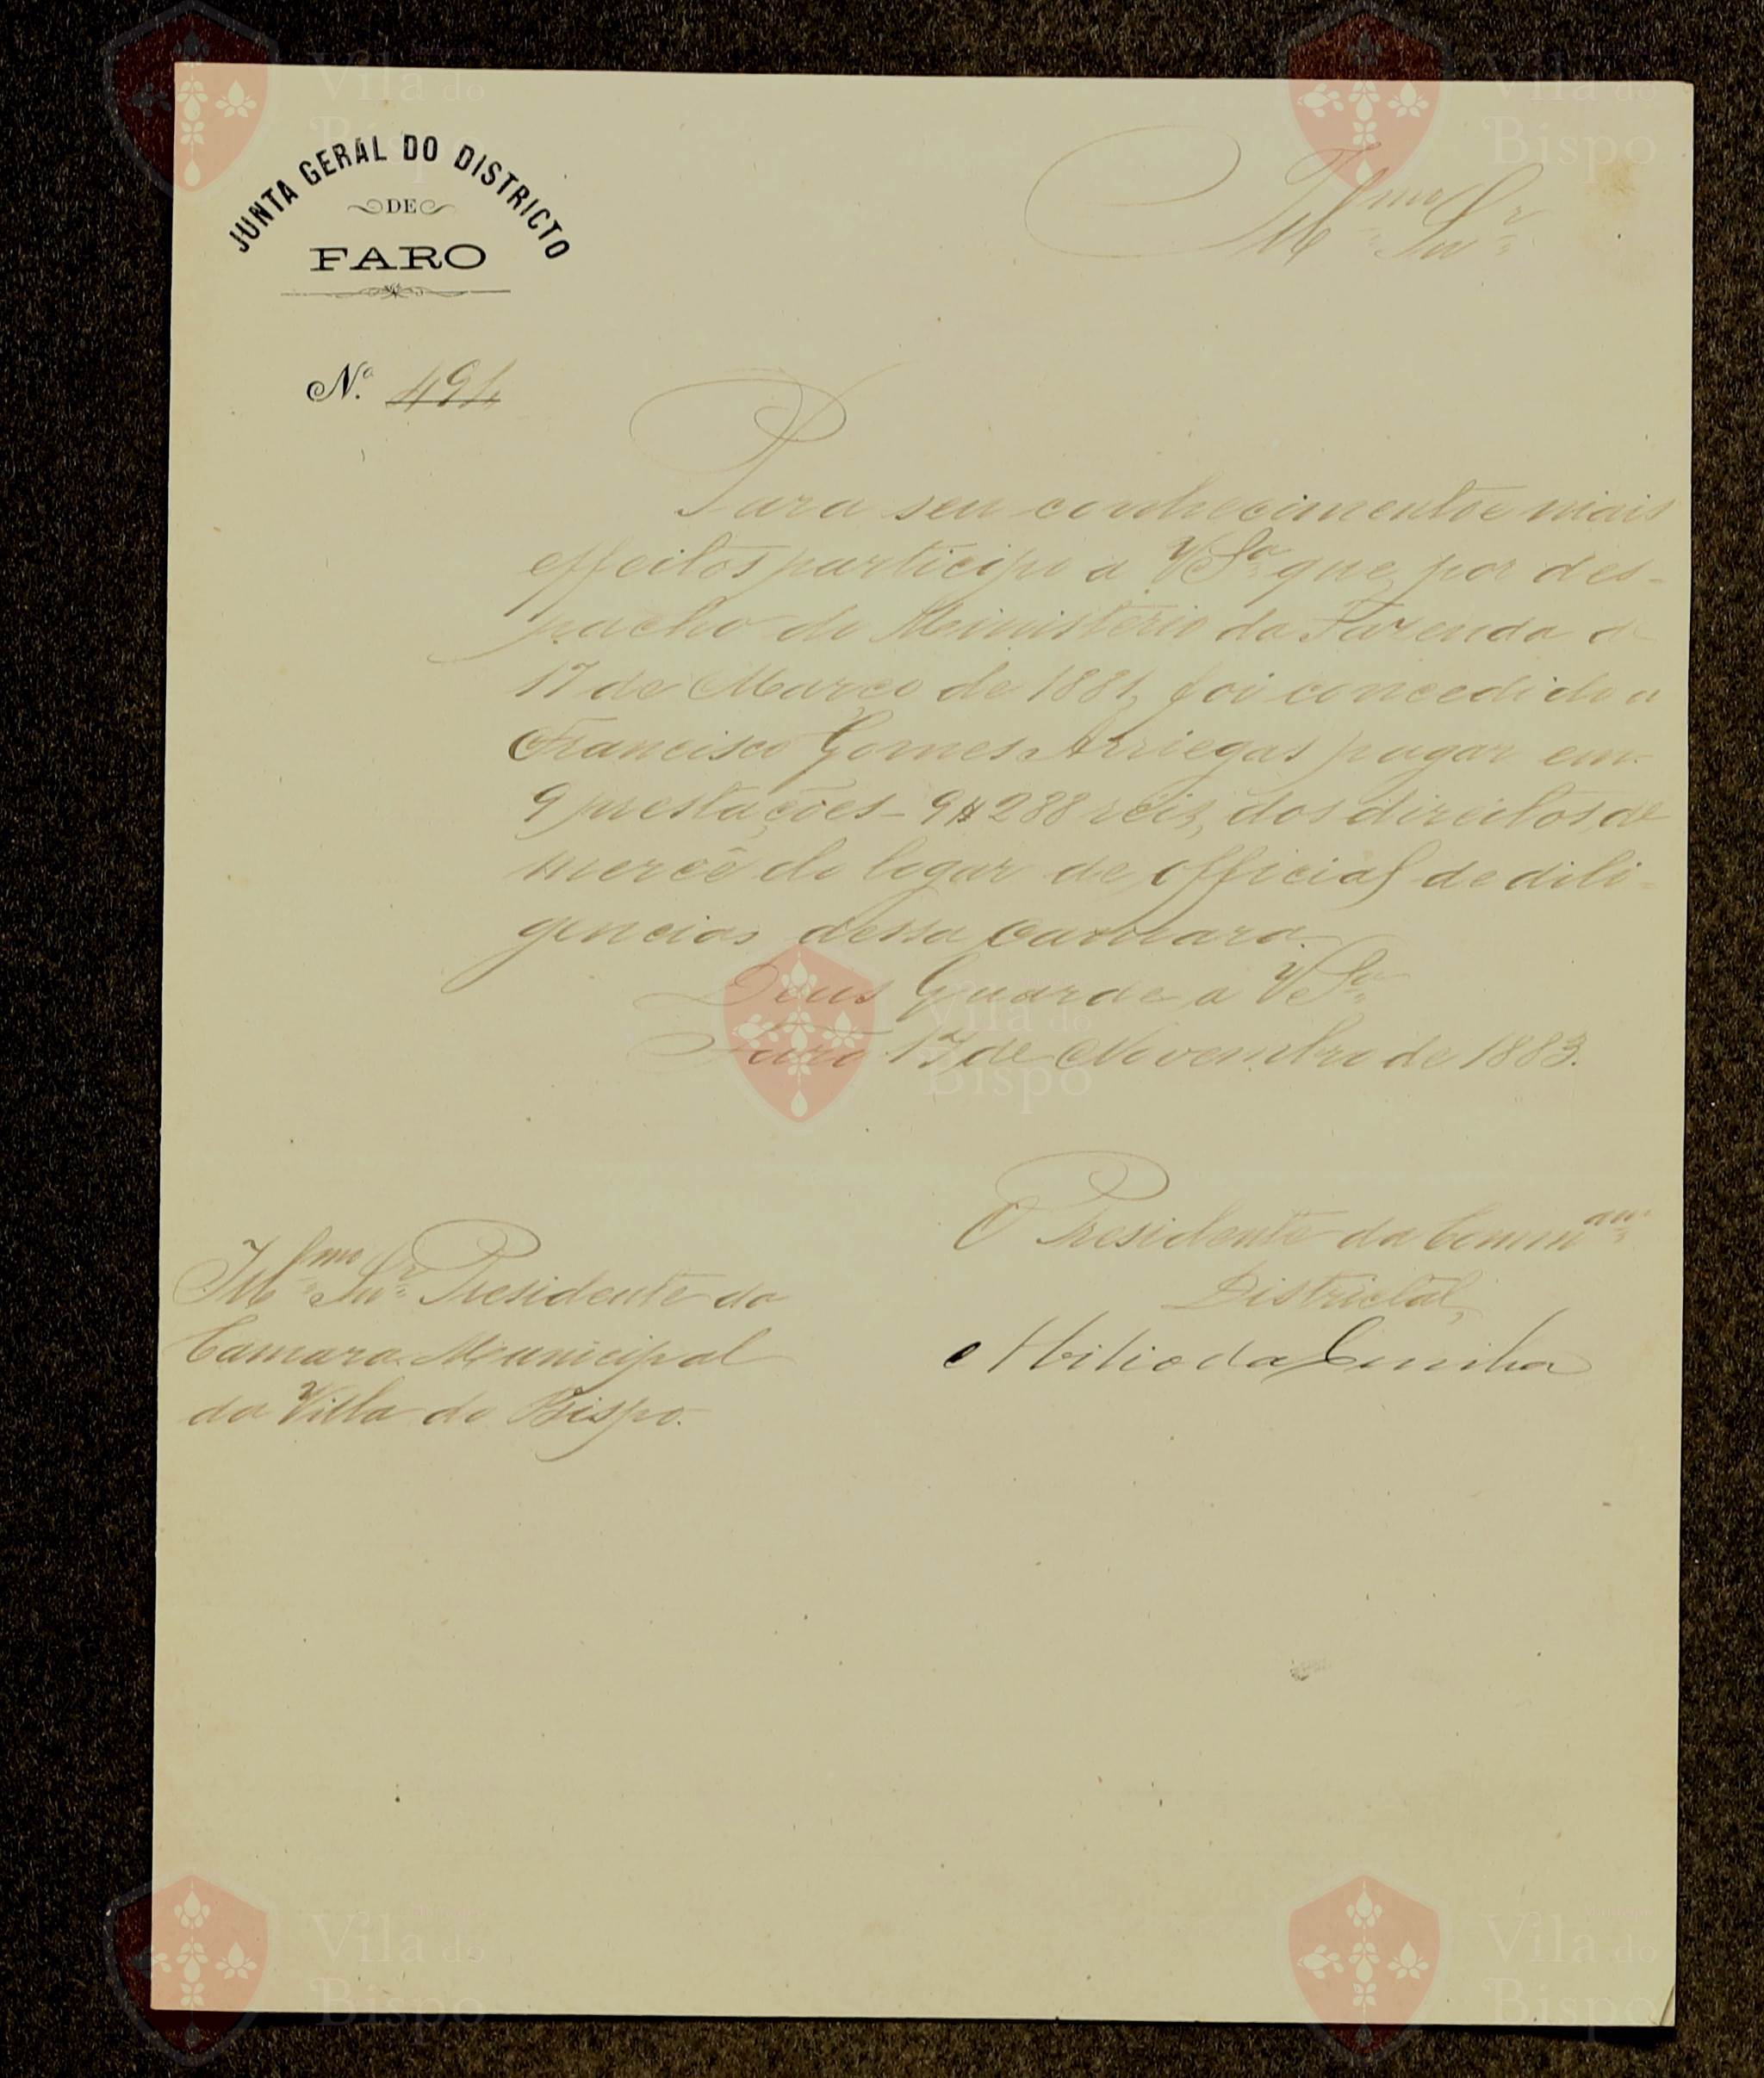 JUNTA GERAL DO DISTRICTO
DE
FARO
Ill.mo Snr.
N.º 494
Para seu conhecimento e mais
effeitos participo a V. S.ª que, por des-
pacho do Ministerio da Fazenda de
17 de Março de 1881, foi concedido a
Francisco Gomes Arriegas pagar em
9 prestações - 9$288 reis, dos direitos de
mercê do logar de official de dili-
gencias dessa camara.
Deus Guarde a V. S.ª
Faro 17 de Novembro de 1883.
O Presidente da Comm.am
Districtal,
Abilio da Cunha
Ill.mo Snr. Presidente da
Camara Municipal
da Villa do Bispo.
Vila do
Bispo
Vila do
Bispo
Vila do
Bispo
Vila do
Bispo
Vila do
Bispo